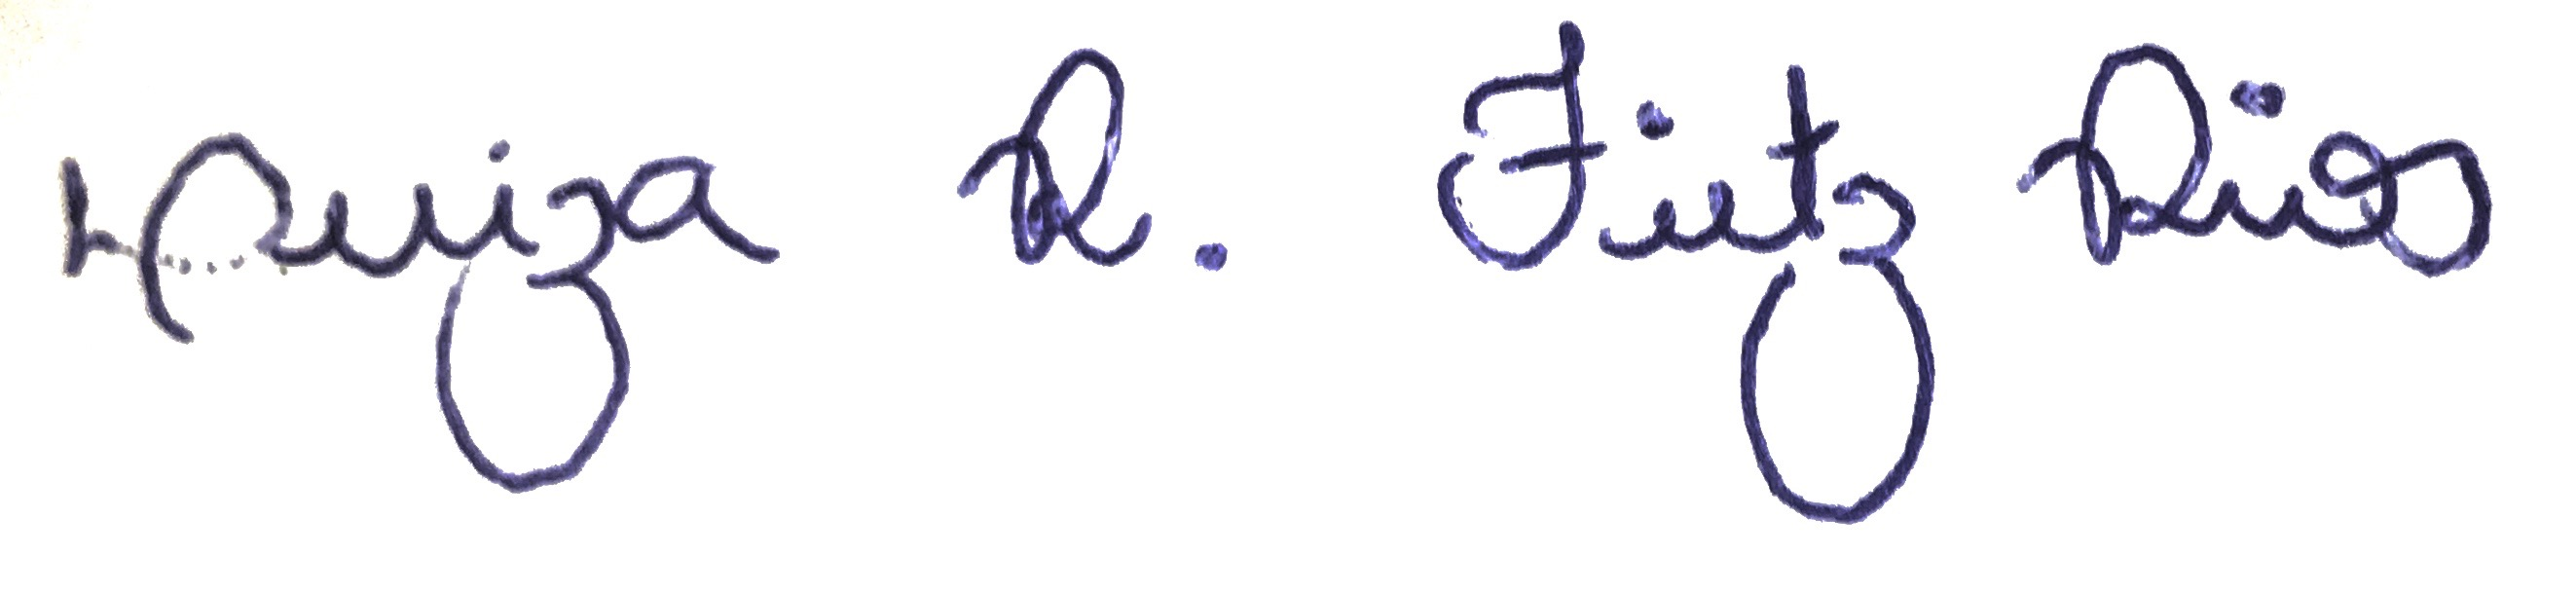 Luiza R. Fietz Rios